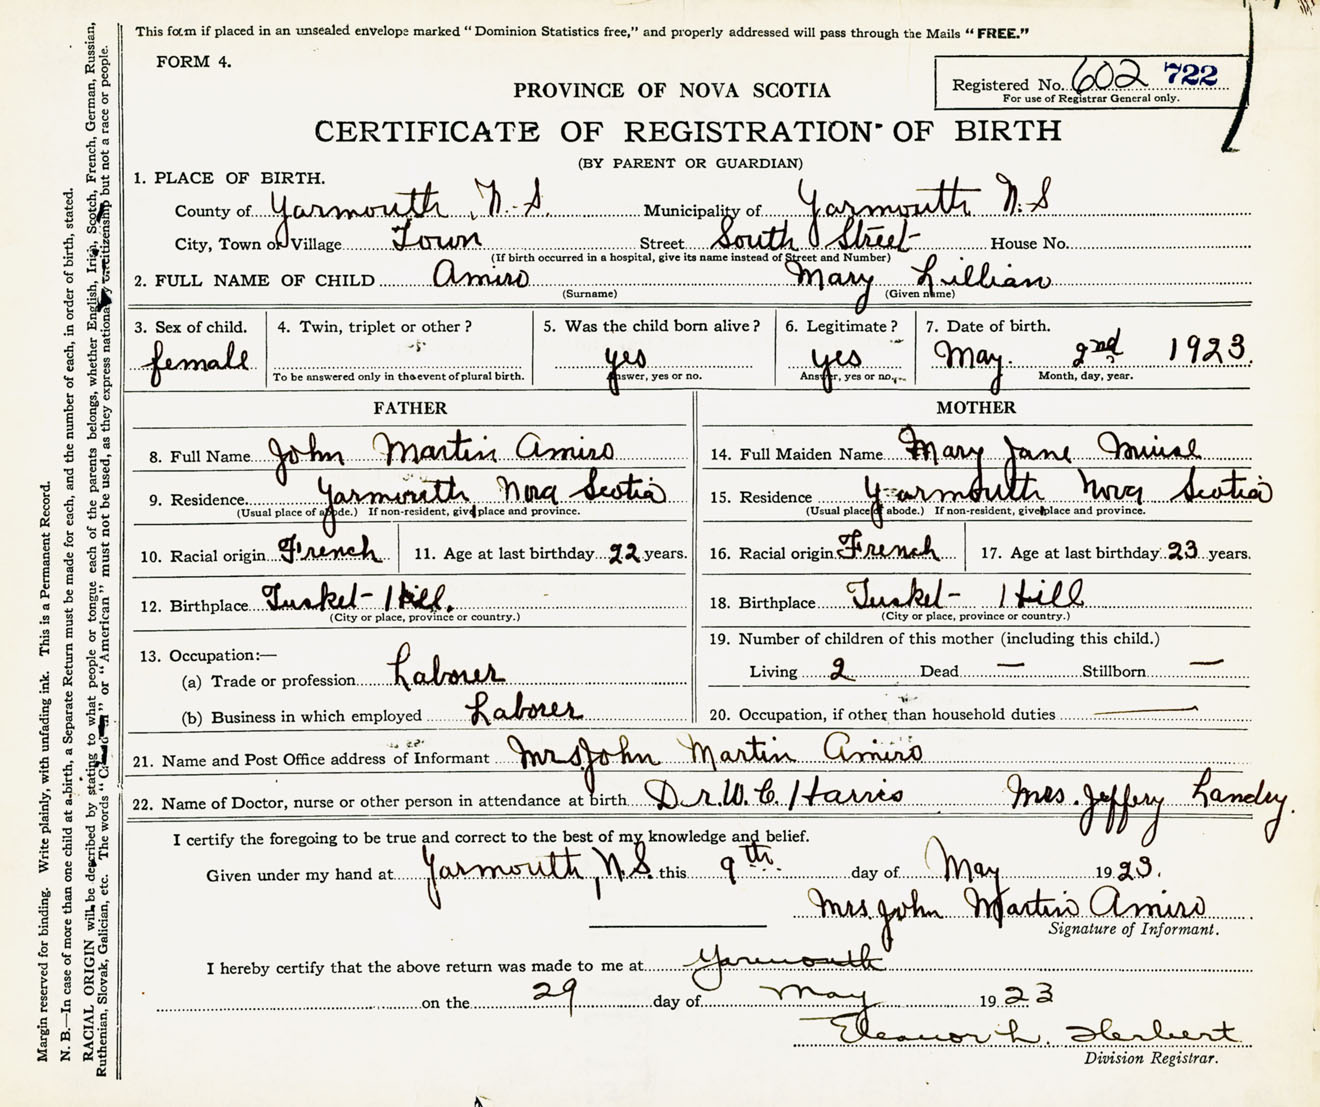 This form if placed in an unsealed envelope marked "Dominion Statistics free," and properly addressed will pass through the Mails "FREE."
FORM 4.
Registered No. 602 722
For use of Registrar General only.
PROVINCE OF NOVA SCOTIA
CERTIFICATE OF REGISTRATION OF BIRTH
(BY PARENT OR GUARDIAN)
1. PLACE OF BIRTH.
County of Yarmouth, N.S. Municipality of Yarmouth N.S
City, Town or Village Town Street South Street House No.
(If birth occurred in a hospital, give its name instead of Street and Number)
2. FULL NAME OF CHILD Amiro Mary Lillian
(Surname) (Given name)
3. Sex of child. 4. Twin, triplet or other? 5. Was the child born alive? 6. Legitimate? 7. Date of birth.
female yes yes May. 2nd 1923.
To be answered only in the event of plural birth. Answer, yes or no. Answer, yes or no. Month, day, year.
FATHER
8. Full Name John Martin Amiro
9. Residence Yarmouth Nova Scotia
(Usual place of abode.) If non-resident, give place and province.
10. Racial origin French 11. Age at last birthday 22 years.
12. Birthplace Tusket-Hill.
(City or place, province or country.)
13. Occupation:—
(a) Trade or profession Laborer
(b) Business in which employed Laborer
MOTHER
14. Full Maiden Name Mary Jane Muise
15. Residence Yarmouth Nova Scotia
(Usual place of abode.) If non-resident, give place and province.
16. Racial origin French 17. Age at last birthday 23 years.
18. Birthplace Tusket- Hill
(City or place, province or country.)
19. Number of children of this mother (including this child.)
Living 2 Dead — Stillborn —
20. Occupation, if other than household duties —
21. Name and Post Office address of Informant Mrs John Martin Amiro
22. Name of Doctor, nurse or other person in attendance at birth Dr. W. C. Harris Mrs. Jeffery Landry.
I certify the foregoing to be true and correct to the best of my knowledge and belief.
Given under my hand at Yarmouth, N.S. this 9th. day of May 1923.
Mrs. John Martin Amiro
Signature of Informant.
I hereby certify that the above return was made to me at Yarmouth
on the 29 day of May 1923
Eleanor L. Herbert
Division Registrar.
Margin reserved for binding. Write plainly, with unfading ink. This is a Permanent Record.
N. B.—In case of more than one child at a birth, a Separate Return must be made for each, and the number of each, in order of birth, stated.
RACIAL ORIGIN will be described by stating to what people or tongue each of the parents belongs, whether English, Irish, Scotch, French, German, Russian,
Ruthenian, Slovak, Galician, etc. The words "Canadian" or "American" must not be used, as they express nationality or citizenship but not a race or people.